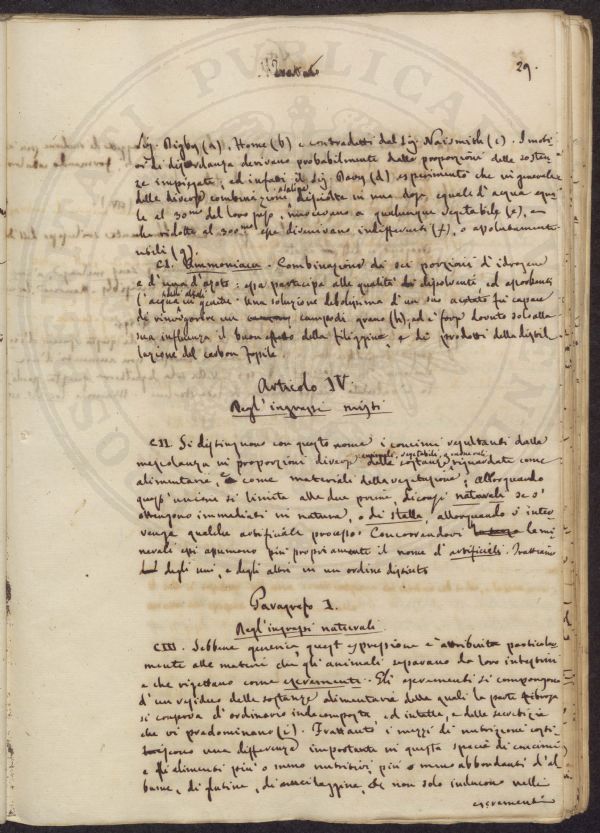 Trattato
29.
Sig. Rigby (a), Home (b) e contradetti dal Sig. Naismith (c). I moti-
vi di discordanza derivano probabilmente dalle proporzioni delle sostan-
ze impiegate, ed infatti il Sig. Davy (d) esperimentò che in generale
delle discorse combinazioni, disciolte in una dose eguale d'acqua
le al 30mo del loro peso, nuocevano a qualunque vegetabile (e), e
che ridotte al 300mo esse divenivano indifferenti (f), o assolutamente
utili (g).
CI. Ammoniaca. Combinazione di sei porzioni di idrogeno
e d'una d'azoto; essa partecipa alle qualità di dissolventi, ed assorbenti
l'acqua degli alcali in genere. Una soluzione debolissima d'un suo acetato fu capace
di rinvigorire un campo di grano (h), ed è forse dovuto solo alla
sua influenza il buon effetto della fuliggine, e di prodotti della distil-
lazione del carbon fossile.
Articolo IV.
Degl'ingrassi misti
CII. Si distinguono con questo nome i concimi resultanti dalla
mescolanza in proporzioni diverse delle sostanze animali, vegetabili, e minerali riguardate come
alimentarie, e come materiali della vegetazione; allorquando
quest'unione si limita alle due prime, diconsi naturali se s'
ottengono immediati in natura, o di stalla, allorquando v'inter-
venga qualche artificiale processo. Concorrendovi le mi-
nerali essi assumono più propriamente il nome d'artificiali. Trattiamo
degli uni, e degli altri in un ordine distinto
Paragrafo I.
Degl'ingrassi naturali
CIII. Sebbene generica, quest'espressione è attribuita particolar-
mente alle materie che gli animali separano da loro intestini
e che rigettano come escrementi. Gli escrementi si compongono
d'un residuo delle sostanze alimentarie delle quali la parte fibrosa
si conserva d'ordinario indecomposta, ed intatta, e delle secretizie
che vi predominano (i). Frattanto i mezzi di nutrizione costi-
tuiscono una differenza importante in questa specie di concimi
e gli alimenti più o meno nutritivi, più o meno abbondanti d'al-
bume, di glutine, di mucilaggine, non solo inducono nelli
escrementi